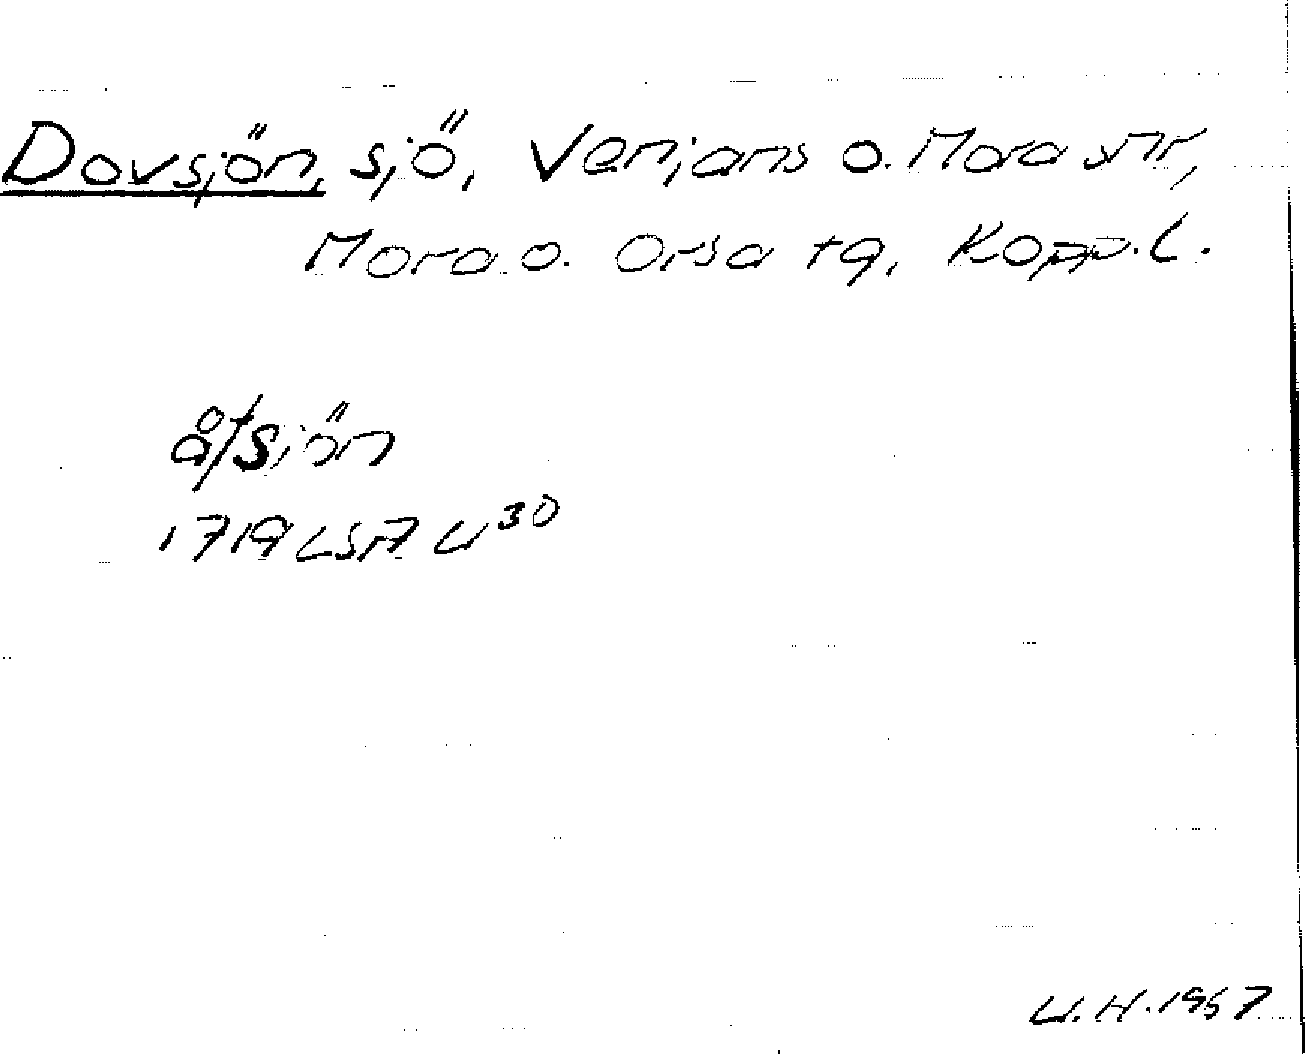 Dovsjön, sjö, Venjans o. Mora snr,
Mora o. Orsa tg, Kopp. l.
åfsjön
1719 LSA U30
U.H. 1967